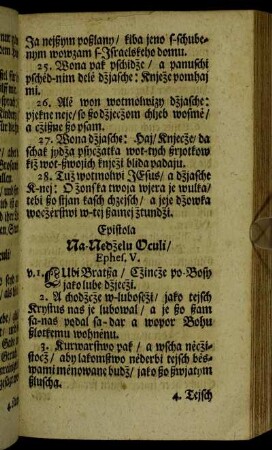 Ja nejsym poßlany / kiba jeno s-schube-
nym wowzam s-Jsraelskeho domu.
25. Wona pak pschidźe / a panuschi
pschéd-nim delé dźjasche: Knjeże pomhaj
mi.
26. Alé won wotmolwizy dźjasche:
pjekne neje / so ßo dźjeczom chljeb wosmé /
a cżißne ßo psam.
27. Wona dźjasche: Haj / Knjecże / da
schak jydźa pßycżatka wot-tych ßrjotkow
kiż wot-ßwojich knjeżi blida padaju.
28. Tuż wotmolwi JEsus / a dźjasche
K-nej: O żonska twoja wjera je wulka /
tebi ßo stjan kasch chzejsch / a jeje dżowka
wocżerstwi w-tej ßamej ztundźi.
Epistola
Na-Nedźelu Oculi /
Ephes. V.
v. 1. LUbi Bratßa / Cżincże po-Bosy
jako lube dźjecżi.
2. A chodźcże w-lubosczi / jako tejsch
Krystus nas je lubowal / a je ßo ßam
sa-nas podal sa-dar a wopor Bohu
ßlotkemu wohnénu.
3. Kurwarstwo pak / a wscha nécżi-
stocż / aby lakomstwo néderbi tejsch bés-
wami ménowane budź / jako ßo ßwjatym
ßluscha.
4. Tejsch